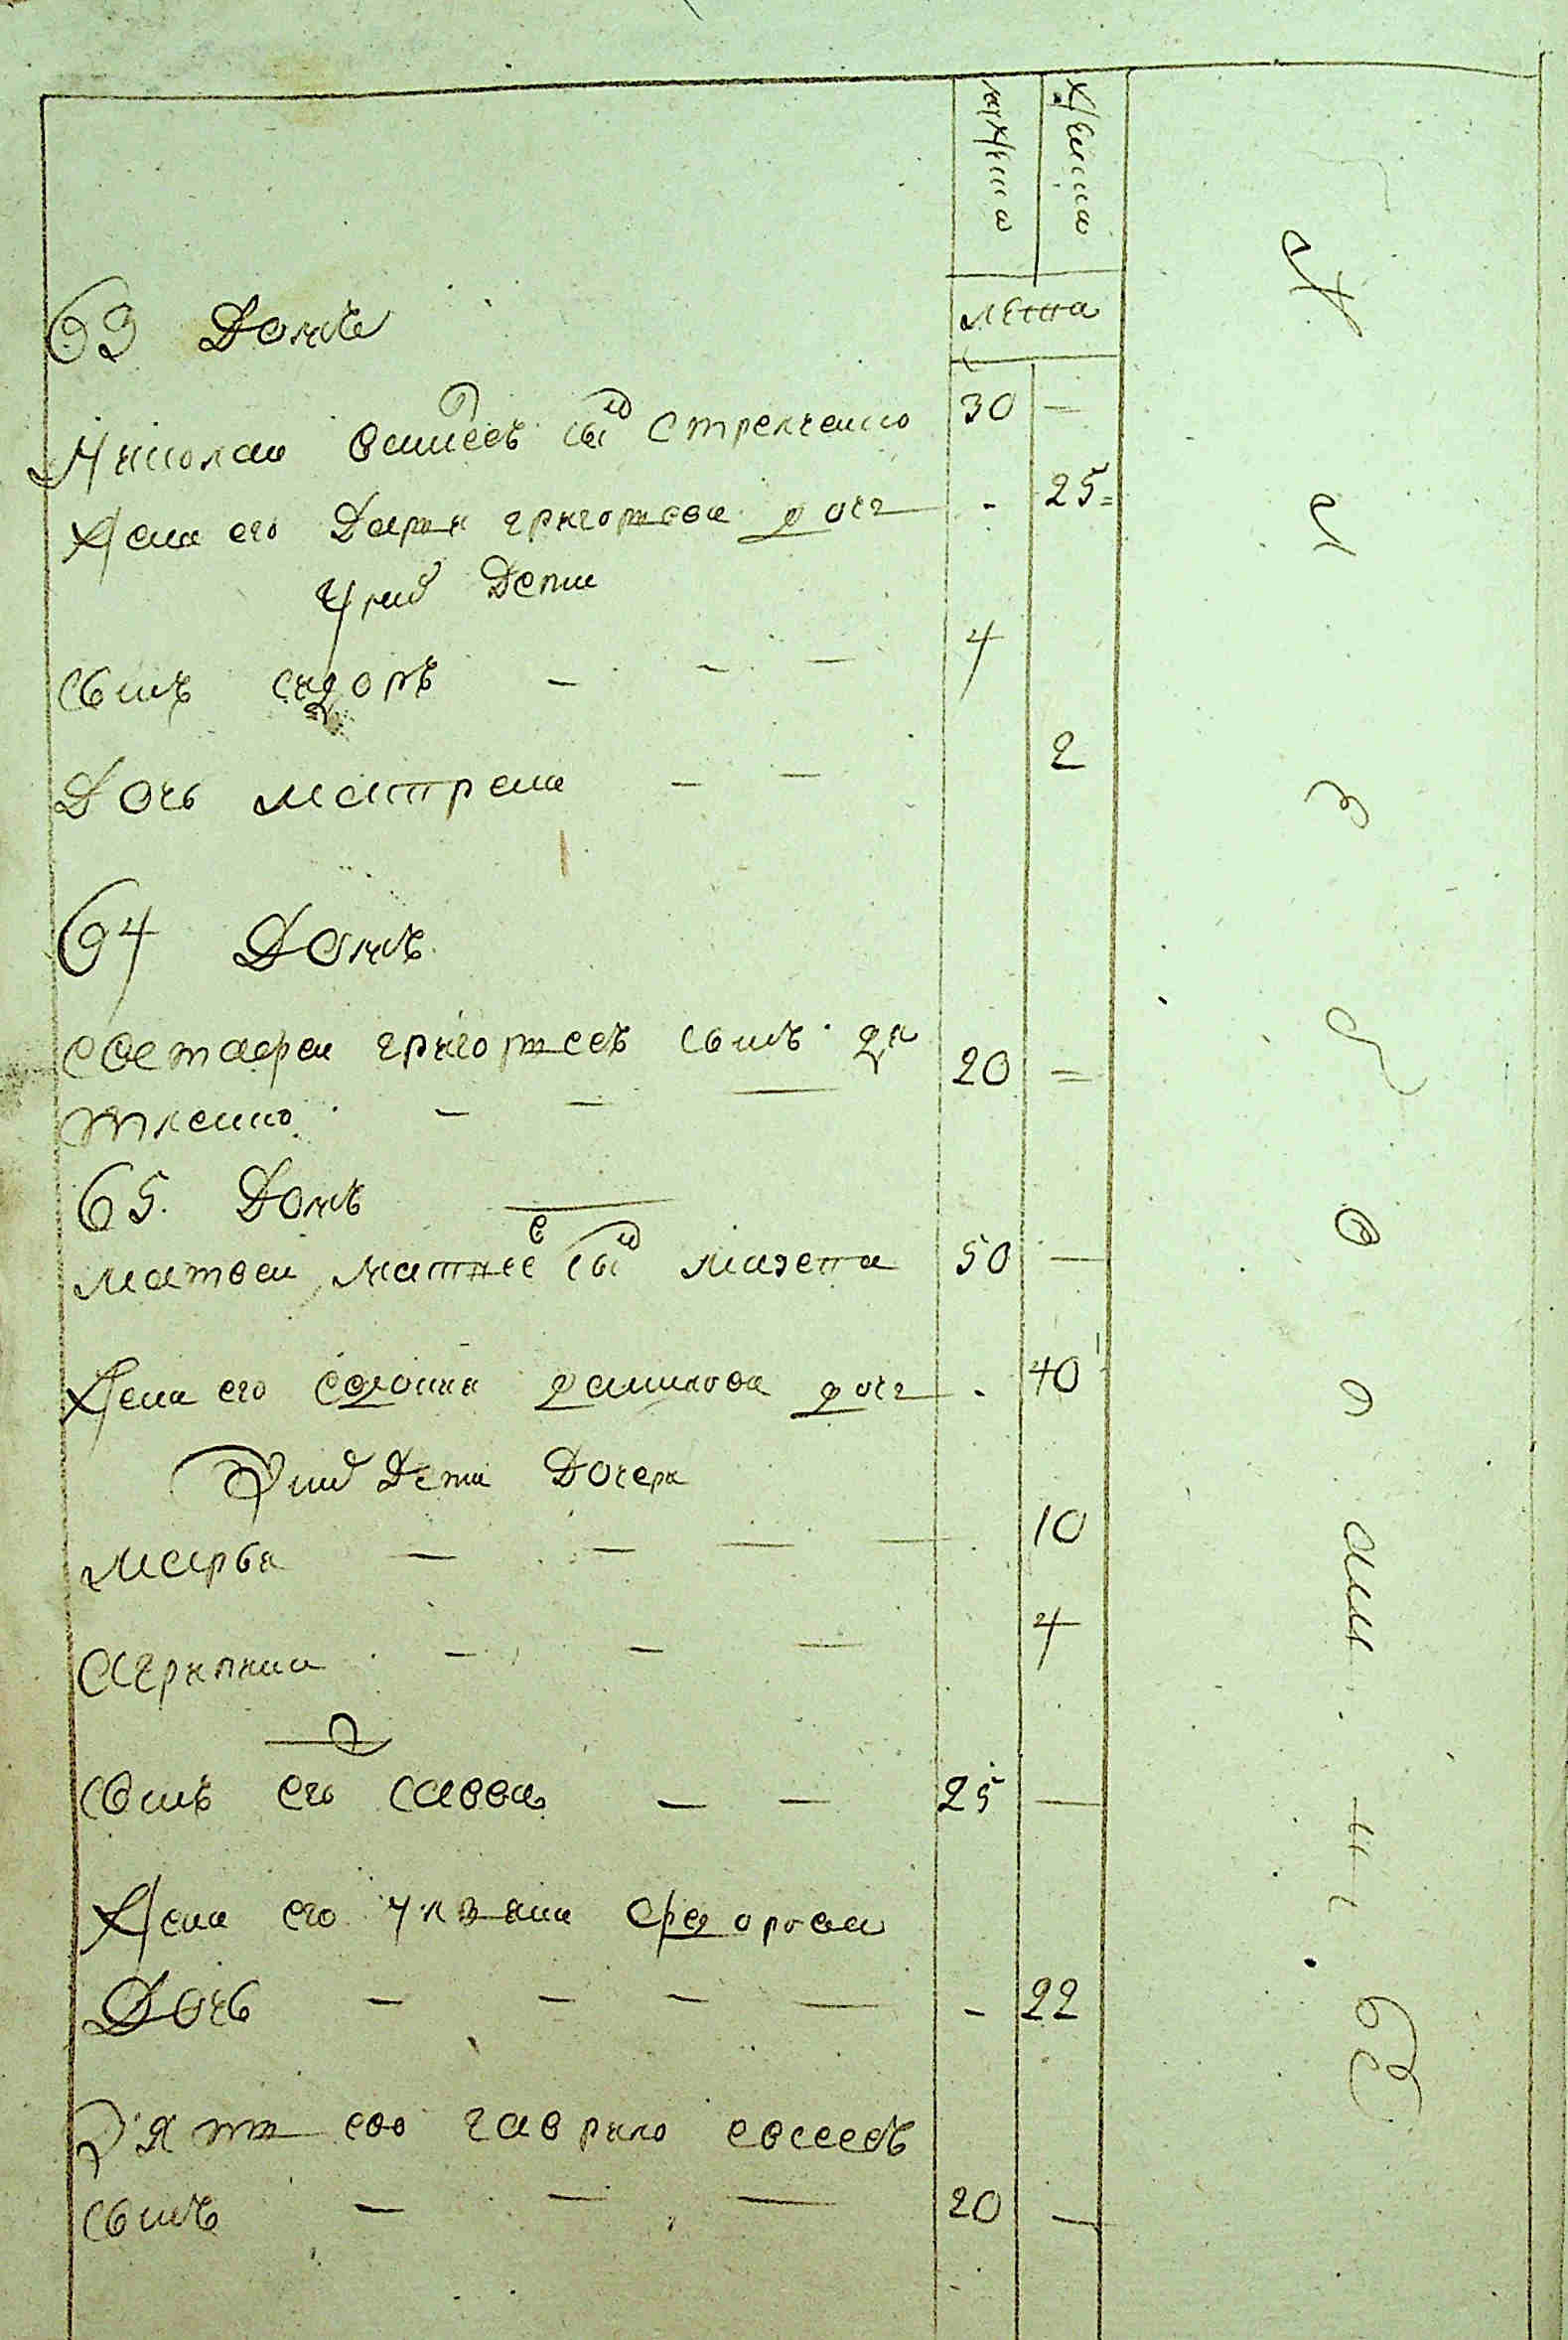 мужска женска
лета
63 Домъ
Николаи сынъ Стрелченко 30 —
Жена его Даря григорева дочь - 25
У них Дети
сынъ сидоръ — — — 4
Дочь матрена — — 2
64 Домъ
евстафеи григореевъ сынъ дя
тленко — — — 20 =
65. Домъ
матвеи матвеев сынъ мазепа 50 —
Жена его евдокия данилова дочь - 40
У них Дети Дочери
марья — — — — 10
Агрипина — — — 4
сынъ его савва — — 25 —
Жена его улияна федорова
Дочь — — — — - 22
Зять ево гаврило евсеевъ
сынъ — — — 20 —